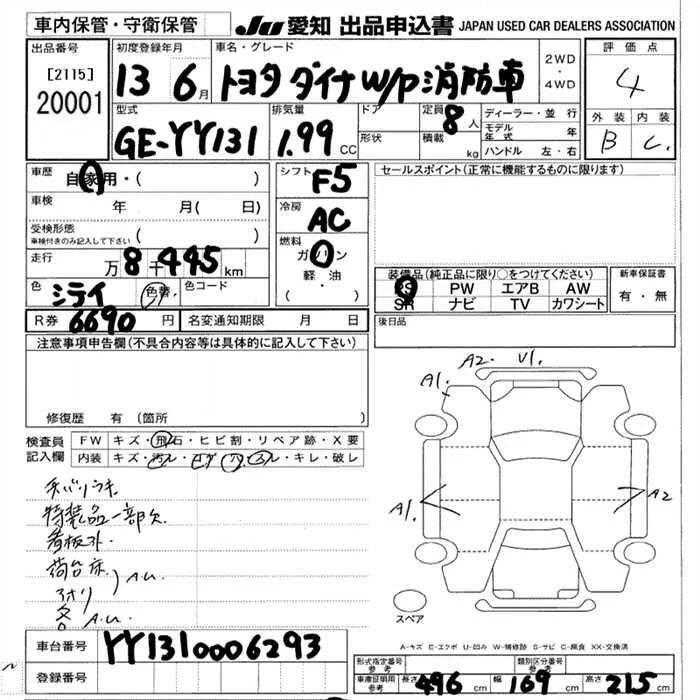 車内保管・守衛保管
JU 愛知 出品申込書 JAPAN USED CAR DEALERS ASSOCIATION
出品番号 初度登録年月 車名・グレード 評価点
[2115] 20001
13 6月
トヨタ ダイナ W/P 消防車
2WD・4WD
4
型式 排気量 ドア 定員 8人 ディーラー・並行 外装 内装
GE-YY131 1.99 CC 形状 積載 kg モデル年式 年 B C
ハンドル 左・右
車歴 自家用・( ) シフト F5 セールスポイント(正常に機能するものに限ります)
車検 年 月( 日) 冷房 AC
受検形態 車検付きのみ記入して下さい ( )
燃料 ガソリン 軽・油 ( )
走行 万 8千 445 km
装備品(純正品に限り○をつけてください) 新車保証書
PS PW エアB AW 有・無
SR ナビ TV カワシート
色 シライ 色替 色コード
R券 6690 円 名変通知期限 月 日 後日品
注意事項申告欄(不具合内容等は具体的に記入して下さい)
修復歴 有 (箇所 )
検査員記入欄 FW キズ・飛石・ヒビ割・リペア跡・X要
内装 キズ・汚レ・コゲ・穴・スレ・キレ・破レ
A2 V1.
A1.
A1. A2
特装品一部欠
看板外
荷台床
アオリ A.U.
A.U.
スペア
A-キズ E-エクボ U-凹み W-補修跡 S-サビ C-腐食 XX-交換済
車台番号 YY1310006293
登録番号
形式指定番号 参考 類別区分番号 参考
車庫証明用 参考 長さ 496 cm 幅 169 cm 高さ 215 cm